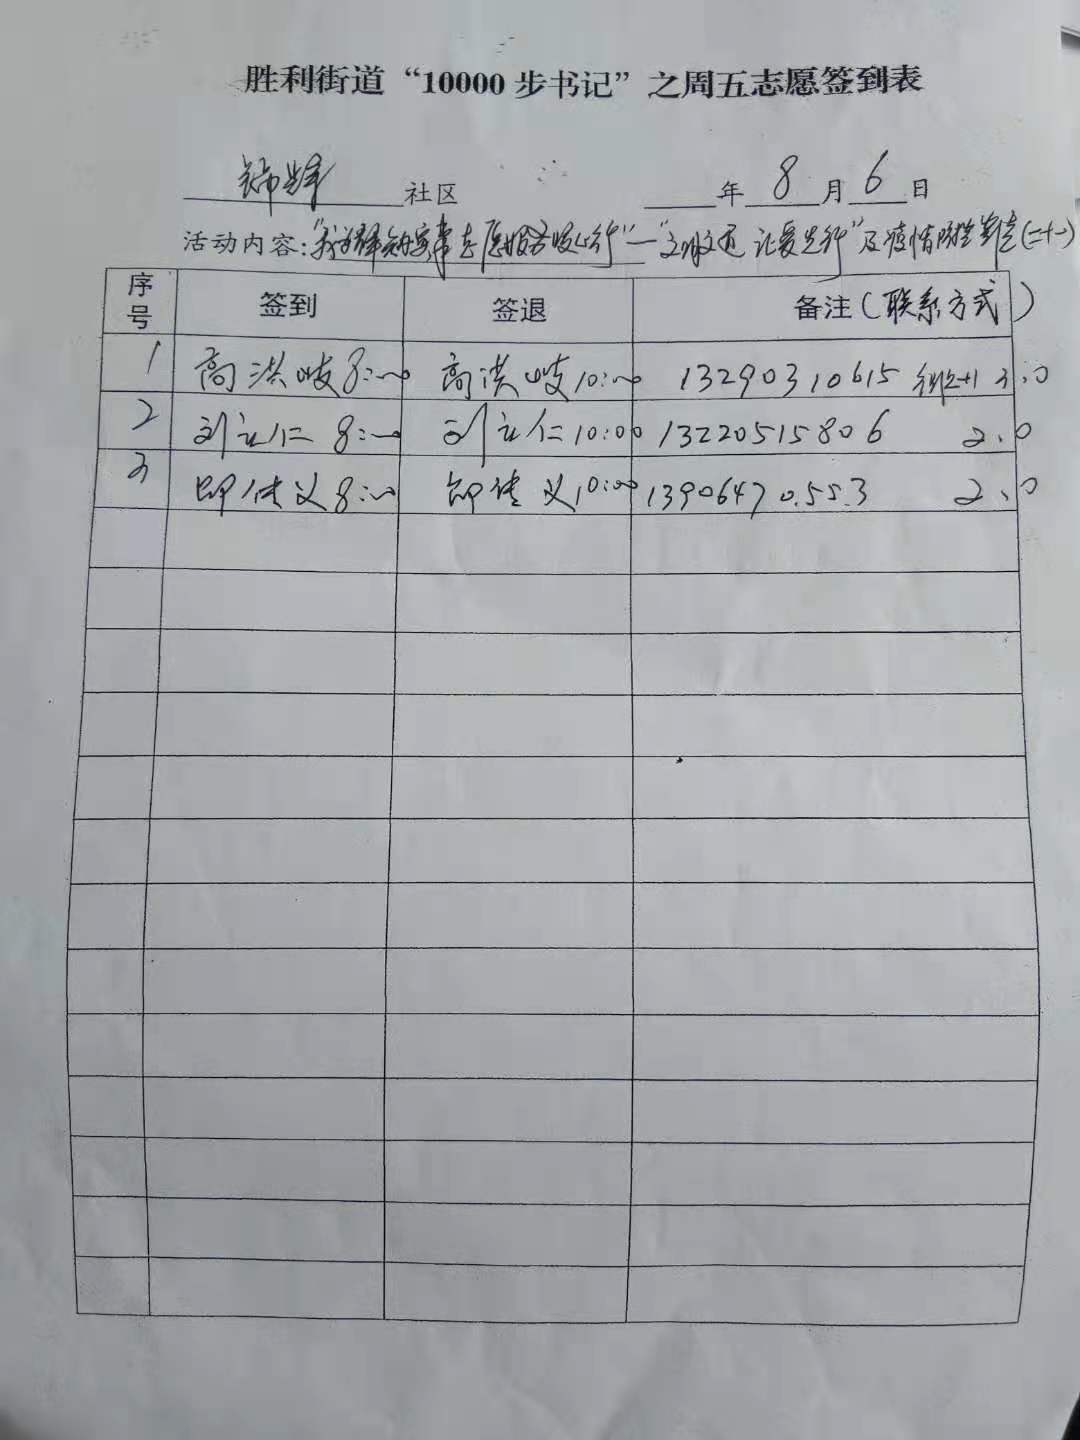 胜利街道“10000步书记”之周五志愿签到表
锦华 社区 年 8 月 6 日
活动内容:“我为群众办实事志愿服务暖心行”—“文明交通 让爱先行”及疫情防控宣传(二十一)
序号 签到 签退 备注(联系方式)
1 高洪岐 8:00 高洪岐 10:00 13290310615 +1 3.0
2 刘立仁 8:00 刘立仁 10:00 13220515806 2.0
3 邵传义 8:00 邵传义 10:00 13906470553 2.0